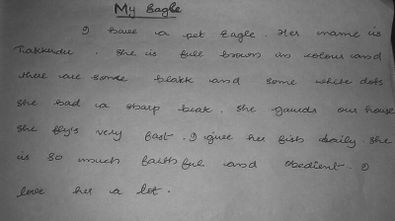 My Eagle
I have a pet Eagle. Her name is
Trakkudu. She is full brown in colour and
there are some black and some white dots
She had a sharp beak. She gaurds our house
She fly's very fast. I give her fish daily. She
is so much faithful and obedient. I
love her a lot.